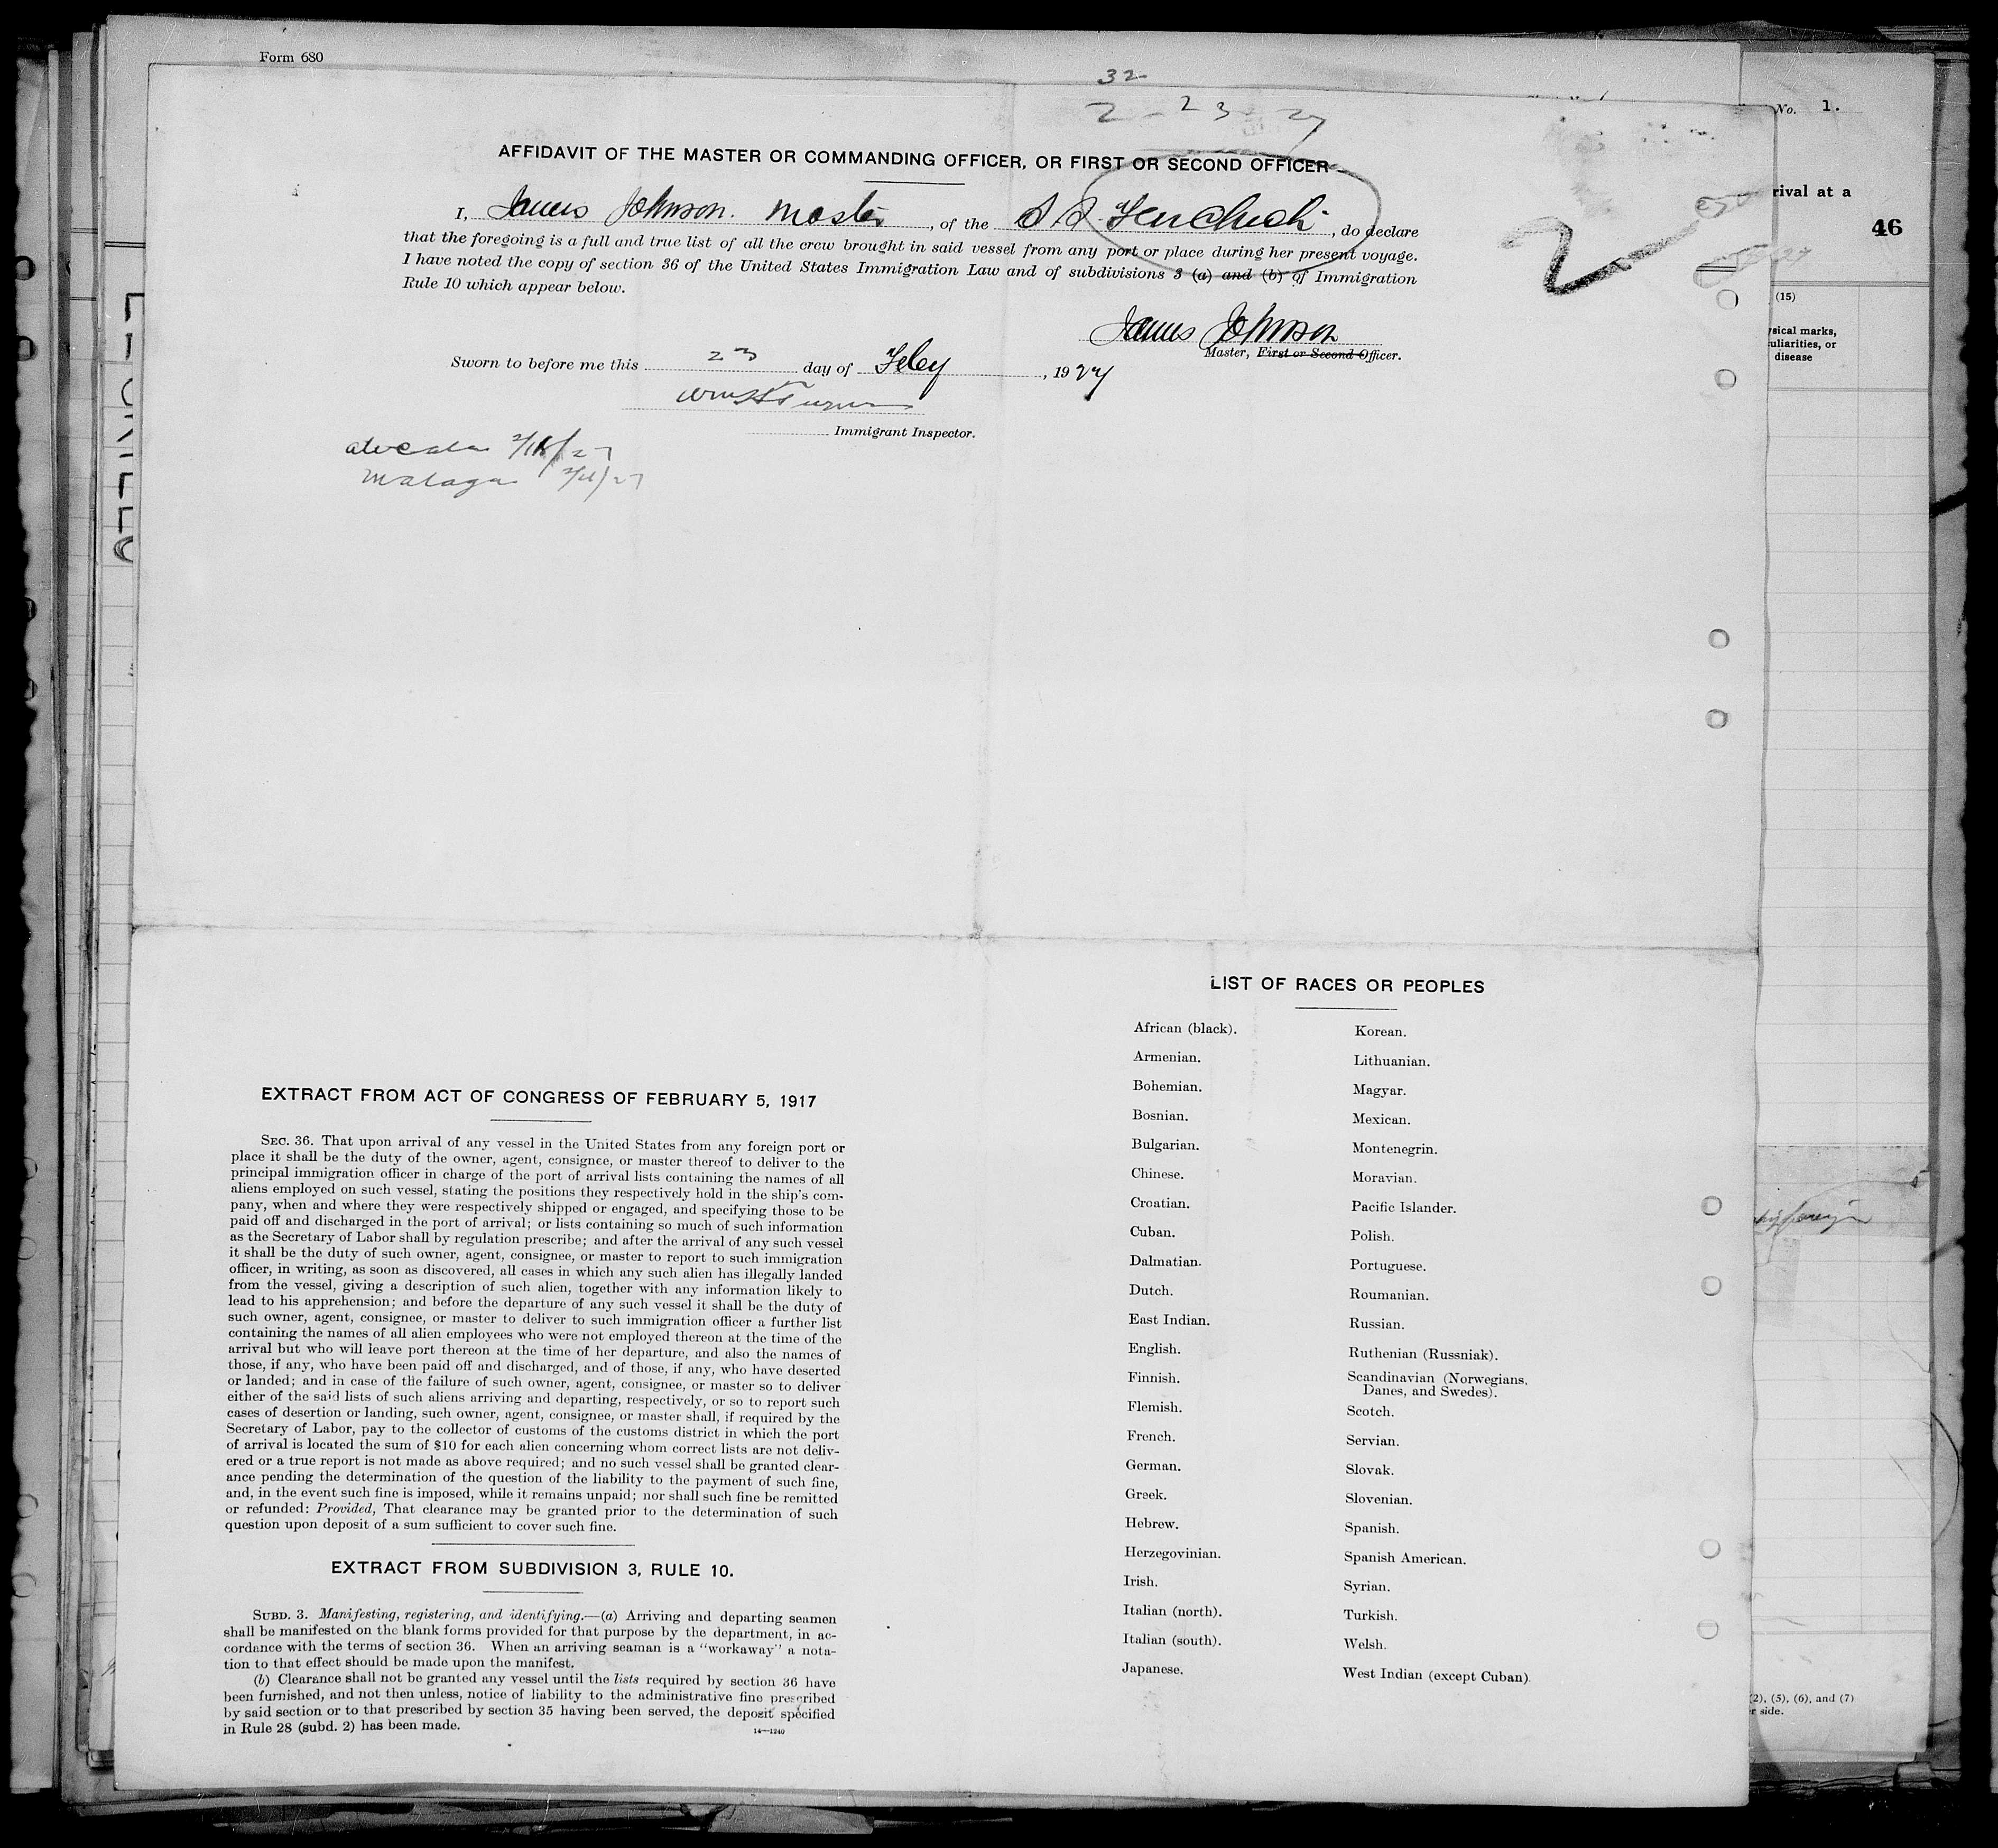 Form 680
32
2 - 23 27
No. 1.
AFFIDAVIT OF THE MASTER OR COMMANDING OFFICER, OR FIRST OR SECOND OFFICER
rival at a
46
I, James Johnson. Master, of the S S, do declare
that the foregoing is a full and true list of all the crew brought in said vessel from any port or place during her present voyage.
I have noted the copy of section 36 of the United States Immigration Law and of subdivisions 3 (a) and (b) of Immigration
Rule 10 which appear below.
2
(15)
sical marks,
uliarities, or
disease
James Johnson
Master, First or Second Officer.
Sworn to before me this 23 day of Feby, 1927
Immigrant Inspector.
Malaga
EXTRACT FROM ACT OF CONGRESS OF FEBRUARY 5, 1917
SEC. 36. That upon arrival of any vessel in the United States from any foreign port or
place it shall be the duty of the owner, agent, consignee, or master thereof to deliver to the
principal immigration officer in charge of the port of arrival lists containing the names of all
aliens employed on such vessel, stating the positions they respectively hold in the ship's com-
pany, when and where they were respectively shipped or engaged, and specifying those to be
paid off and discharged in the port of arrival; or lists containing so much of such information
as the Secretary of Labor shall by regulation prescribe; and after the arrival of any such vessel
it shall be the duty of such owner, agent, consignee, or master to report to such immigration
officer, in writing, as soon as discovered, all cases in which any such alien has illegally landed
from the vessel, giving a description of such alien, together with any information likely to
lead to his apprehension; and before the departure of any such vessel it shall be the duty of
such owner, agent, consignee, or master to deliver to such immigration officer a further list
containing the names of all alien employees who were not employed thereon at the time of the
arrival but who will leave port thereon at the time of her departure, and also the names of
those, if any, who have been paid off and discharged, and of those, if any, who have deserted
or landed; and in case of the failure of such owner, agent, consignee, or master so to deliver
either of the said lists of such aliens arriving and departing, respectively, or so to report such
cases of desertion or landing, such owner, agent, consignee, or master shall, if required by the
Secretary of Labor, pay to the collector of customs of the customs district in which the port
of arrival is located the sum of $10 for each alien concerning whom correct lists are not deliv-
ered or a true report is not made as above required; and no such vessel shall be granted clear-
ance pending the determination of the question of the liability to the payment of such fine,
and, in the event such fine is imposed, while it remains unpaid; nor shall such fine be remitted
or refunded: Provided, That clearance may be granted prior to the determination of such
question upon deposit of a sum sufficient to cover such fine.
EXTRACT FROM SUBDIVISION 3, RULE 10.
SUBD. 3. Manifesting, registering, and identifying.—(a) Arriving and departing seamen
shall be manifested on the blank forms provided for that purpose by the department, in ac-
cordance with the terms of section 36. When an arriving seaman is a "workaway" a nota-
tion to that effect should be made upon the manifest.
(b) Clearance shall not be granted any vessel until the lists required by section 36 have
been furnished, and not then unless, notice of liability to the administrative fine prescribed
by said section or to that prescribed by section 35 having been served, the deposit specified
in Rule 28 (subd. 2) has been made.
14—1240
LIST OF RACES OR PEOPLES
African (black).
Armenian.
Bohemian.
Bosnian.
Bulgarian.
Chinese.
Croatian.
Cuban.
Dalmatian.
Dutch.
East Indian.
English.
Finnish.
Flemish.
French.
German.
Greek.
Hebrew.
Herzegovinian.
Irish.
Italian (north).
Italian (south).
Japanese.
Korean.
Lithuanian.
Magyar.
Mexican.
Montenegrin.
Moravian.
Pacific Islander.
Polish.
Portuguese.
Roumanian.
Russian.
Ruthenian (Russniak).
Scandinavian (Norwegians,
Danes, and Swedes).
Scotch.
Servian.
Slovak.
Slovenian.
Spanish.
Spanish American.
Syrian.
Turkish.
Welsh.
West Indian (except Cuban)
(2), (5), (6), and (7)
r side.